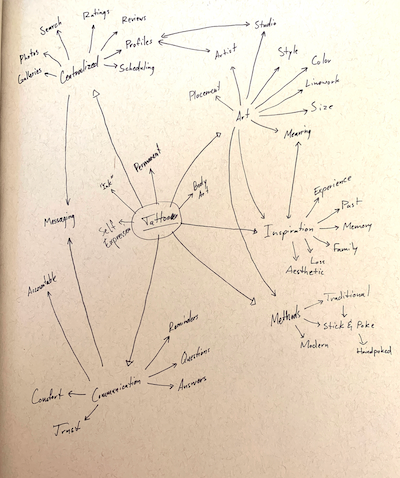 Search
Ratings
Reviews
Photos
Profiles
Galleries
Centralized
Scheduling
Studio
Artist
Style
Color
Placement
Linework
Art
Size
Meaning
Permanent
"Ink"
Body
Art
Messaging
Self
Expression
Tattoos
Experience
Past
Inspiration
Memory
Family
Loss
Aesthetic
Accountable
Methods
Traditional
Stick & Poke
Handpoked
Modern
Reminders
Questions
Answers
Comfort
Communication
Trust